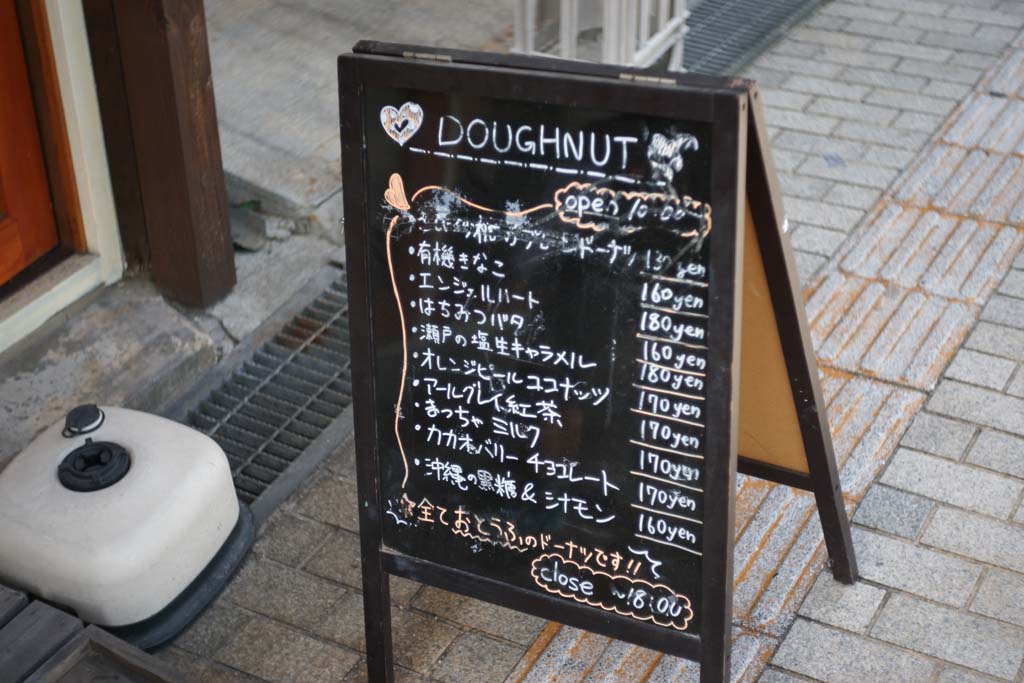 DOUGHNUT
open 10:00
ドーナツ 130yen
・有機きなこ 160yen
・エンジェルハート 180yen
・はちみつバタ 160yen
・瀬戸の塩生キャラメル 180yen
・オレンジピールココナッツ 170yen
・アールグレイ紅茶 170yen
・まっちゃミルク 170yen
・カカオバリーチョコレート 170yen
・沖縄の黒糖&シナモン 160yen
全ておとうふのドーナツです!!
close ~18:00